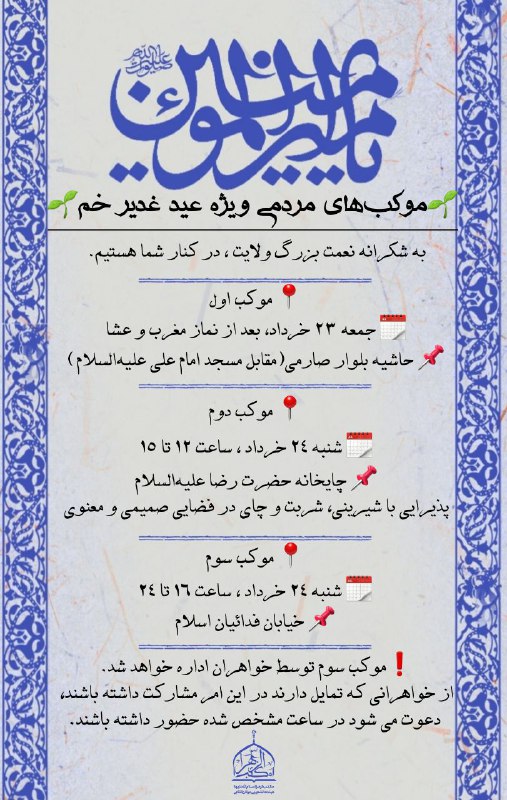 یا امیرالمومنین
علیه‌السلام
موکب‌های مردمی ویژه عید غدیر خم
به شکرانه نعمت بزرگ ولایت، در کنار شما هستیم.
موکب اول
جمعه ۲۳ خرداد، بعد از نماز مغرب و عشا
حاشیه بلوار صارمی( مقابل مسجد امام علی علیه‌السلام )
موکب دوم
شنبه ۲۴ خرداد ، ساعت ۱۲ تا ۱۵
چایخانه حضرت رضا علیه‌السلام
پذیرایی با شیرینی، شربت و چای در فضایی صمیمی و معنوی
موکب سوم
شنبه ۲۴ خرداد ، ساعت ۱۶ تا ۲۴
خیابان فدائیان اسلام
❗ موکب سوم توسط خواهران اداره خواهد شد.
از خواهرانی که تمایل دارند در این امر مشارکت داشته باشند،
دعوت می شود در ساعت مشخص شده حضور داشته باشند.